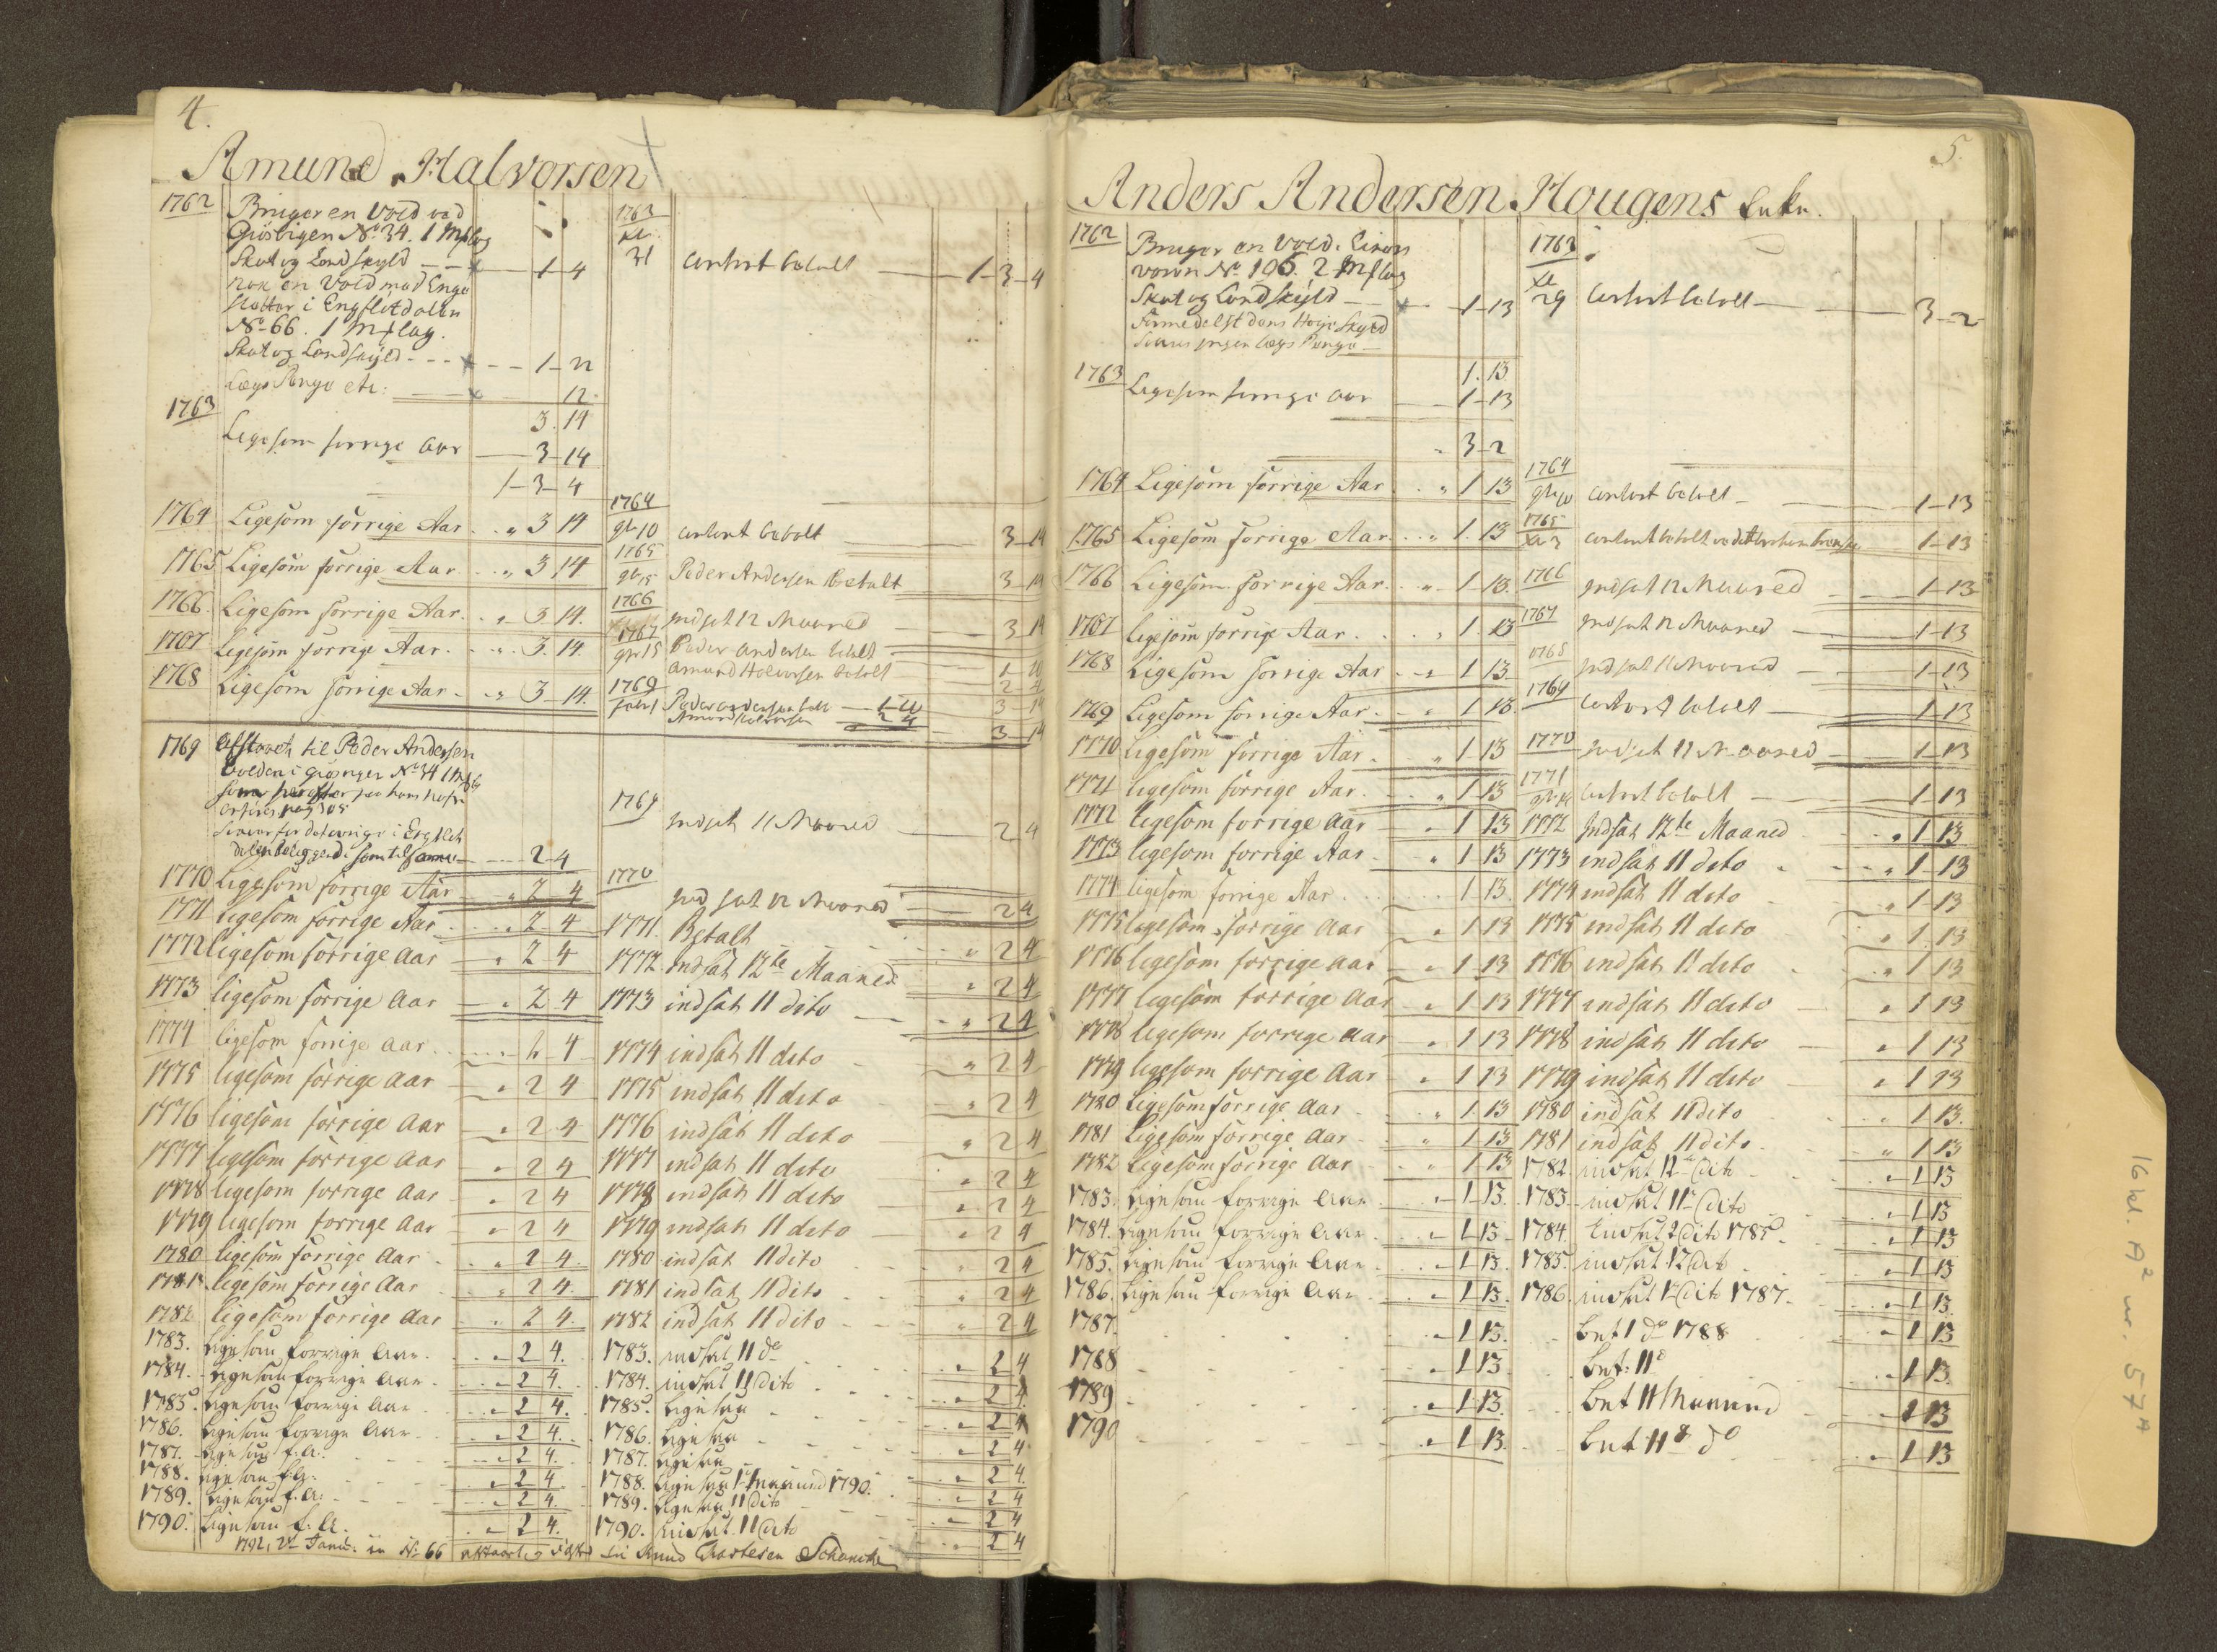 4.
Amund Halvorsen
1762 Bruger en Vold ved
Giösvigen No. 34. 1 Mflag
Skat og Landskyld - - 1-4
nok en Vold med Enge
Sletter i Engsletdalen
No. 66. 1 Mflag.
Skat og Landskyld - - - 1-22
Lægs Penge etc: 12.
3.14
1763 Ligesom forrige Aar 3-14
1-3-4
1764 Ligesom forrige Aar . . „ 3 14
1765 Ligesom forrige Aar . . „ 3 14
1766. Ligesom forrige Aar. . „ 3 14.
1767 Ligesom forrige Aar. . „ 3. 14.
1768 Ligesom forrige Aar - „ 3-14.
1769 Afstaaet til Peder Andersen
Volden i Giösvigen No. 34 1 Mflag
som herefter paa hans Nafn
anföres pag 105
Svarer for det övrige i Englset
dalen beliggende som tilforne - 2-4
1770 ligesom forrige Aar „ 2 4
1771 ligesom forrige Aar „ 2 4
1772 ligesom forrige aar „ 2 4
1773. ligesom forrige aar „ 2 4
1774 ligesom forrige aar 2 4
1775 ligesom forrige aar „ 2 4
1776 ligesom forrige aar „ 2 4
1777 ligesom forrige aar „ 2 4
1778 ligesom forrige aar „ 2 4
1779 ligesom forrige aar „ 2 4
1780 ligesom forrige aar „ 2 4.
1781 ligesom forrige Aar „ 2 4.
1782 ligesom forrige aar „ 2 4.
1783. ligesom forrige Aar. „ 2 4.
1784. ligesom forrige Aar „ 2 4.
1785. ligesom forrige Aar „ 2 4.
1786. ligesom forrige Aar „ 2 4.
1787. ligesom f. A. „ 2 4.
1788. ligesom f. A. „ 2 4
1789. ligesom f. A. „ 2 4.
1790. ligesom f. A. „ 2 4.
1763
31 contant betalt 1-3-4
1764
10 contant betalt 3-14
1765
15 Peder Andersen betalt 3-14
1766 Indsat 12 Maaned 3 14
1767
15 Peder Andersen betalt 1-10
Amund Halvorsen betalt 2-4
3-14
1769
Peder Andersen betalt 1-10
Amund Halvorsen 2 4
3-14
1769 Indsat 11 Maaned 2 4
1770 Ind sat 12 Maaned 2 4
1771 Betalt „ 2 4
1772 Indsat 12te Maaned „ 2 4
1773 indsat 11 dito „ 2 4
1774 indsat 11 dito „ 2 4
1775 indsat 11 dito „ 2 4
1776 indsat 11 dito „ 2 4
1777 indsat 11 dito „ 2 4
1778 indsat 11 dito „ 2 4
1779 indsat 11 dito „ 2 4
1780 indsat 11 dito „ 2 4
1781 indsat 11 dito „ 2 4
1782 indsat 11 dito „ 2 4
1783. indsat 11 do „ 2 4
1784. indsat 11 dito „ 2 4
1785. ligesaa „ 2 4
1786. ligesaa „ 2 4
1787. ligesaa „ 2 4.
1788. ligesaa 1 Maaned 1790. „ 2 4
1789. ligesaa 11 dito „ 2 4
1790. indsat 11 dito „ 2 4
1792, 2 Janu: No 66 Knud Schancke
5.
Anders Andersen Hougens Enke.
1762 Bruger en Vold
No. 106. 2 Mflag
Skat og Landskyld 1-13
formedelst dens Höye Skyld
svares ingen Lægs Penge
1.13
1763 Ligesom forrige aar 1-13
„ 3-2
1764 Ligesom forrige Aar „ 1 13
1765 Ligesom forrige Aar „ 1. 13
1766 Ligesom forrige Aar „ 1-13.
1767 Ligesom forrige Aar „ 1. 13
1768 Ligesom forrige Aar „ 1 13
1769 Ligesom forrige Aar „ 1 13.
1770 ligesom forrige Aar „ 1 13
1771 ligesom forrige Aar „ 1 13
1772 ligesom forrige aar „ 1 13
1773 ligesom forrige Aar „ 1 13
1774 ligesom forrige Aar 1 13
1775 ligesom forrige aar „ 1 13
1776 ligesom forrige aar „ 1 13
1777 ligesom forrige aar „ 1 13
1778 ligesom forrige aar „ 1 13
1779 ligesom forrige Aar „ 1 13
1780 ligesom forrige aar „ 1. 13
1781 ligesom forrige aar „ 1 13
1782 ligesom forrige aar „ 1 13
1783. ligesom forrige Aar „ 1 13.
1784. ligesom forrige Aar „ 1 13
1785. ligesom forrige Aar „ 1 13.
1786. ligesom forrige Aar „ 1 13.
1787. „ 1 13.
1788 „ 1 13
1789 „ 1 13.
1790 „ 1 13.
1763
29 contant betalt 3-2
1764
contant betalt 1-13
1765
contant betalt 1-13
1766 Indsat 12 Maaned 1-13
1767 Indsat 12 Maaned 1-13
1768 Indsat 11 Maaned 1-13
1769 contant betalt 1 13
1770 Indsat 11 Maaned 1-13
1771 contant betalt 1-13
1772 Indsat 12te Maaned „ 1 13
1773 indsat 11 dito „ 1 13
1774 indsat 11 dito „ 1 13
1775 indsat 11 dito „ 1 13
1776 indsat 11 dito „ 1 13
1777 indsat 11 dito „ 1 13
1778 indsat 11 dito „ 1 13
1779 indsat 11 dito „ 1 13
1780 indsat 11 dito „ 1 13.
1781 indsat 11 dito „ 1 13
1782. indsat 12 dito „ 1 13
1783. indsat 11 dito „ 1 13
1784. Indsat 2 dito 1785. „ 1 13
1785. indsat 12 dito „ 1 13
1786. indsat 1 dito 1787. „ 1 13.
bet 1 do 1788 „ 1 13
bet: 11 „ 1 13.
bet 11 Maaned „ 1 13
bet 11 do „ 1 13
16 kl. A2 nr. 57A